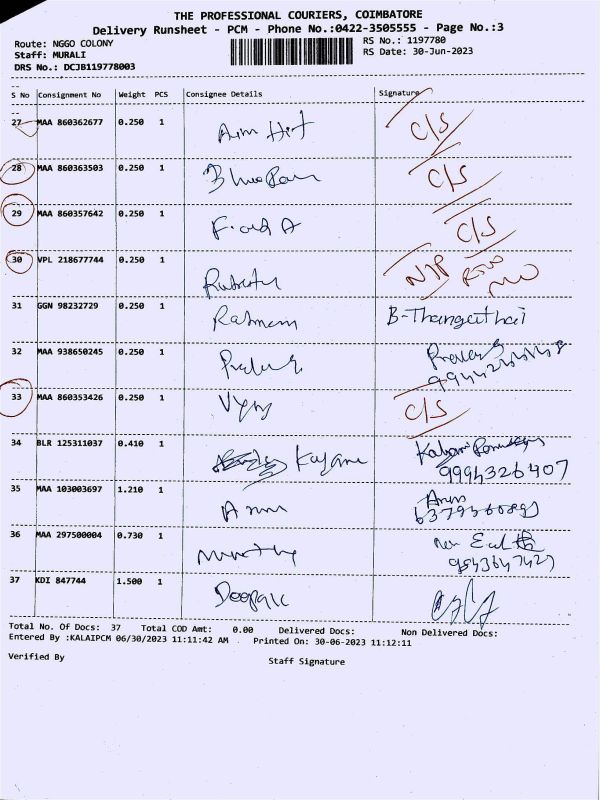 THE PROFESSIONAL COURIERS, COIMBATORE
Delivery Runsheet - PCM - Phone No.:0422-3505555 - Page No.:3
Route: NGGO COLONY
RS No.: 1197780
Staff: MURALI
RS Date: 30-Jun-2023
DRS No.: DCJB119778003
S No Consignment No Weight PCS Consignee Details Signature
27 MAA 860362677 0.250 1 C/S
28 MAA 860363503 0.250 1 C/S
29 MAA 860357642 0.250 1 C/S
30 VPL 218677744 0.250 1
31 GGN 98232729 0.250 1 Ratnam B-Thangathai
32 MAA 938650245 0.250 1
33 MAA 860353426 0.250 1 C/S
34 BLR 125311037 0.410 1
9994326407
35 MAA 103003697 1.210 1
36 MAA 297500004 0.730 1
37 KDI 847744 1.500 1 Deepak
Total No. Of Docs: 37 Total COD Amt: 0.00 Delivered Docs: Non Delivered Docs:
Entered By :KALAIPCM 06/30/2023 11:11:42 AM . Printed On: 30-06-2023 11:12:11
Verified By Staff Signature